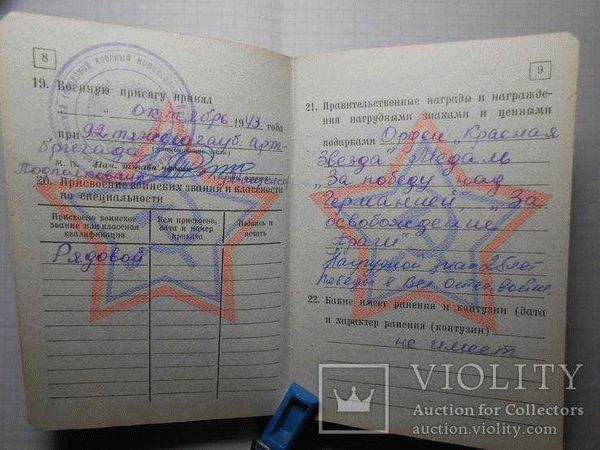 8
19. Военную присягу принял
октябрь 1943 года
при 92 тяжелогауб. арт-
бригада
М. П. Нач. штаба части
Подполковник
20. Присвоение воинских званий и классности
по специальности
Присвоено воинское
звание или классная
квалификация
Кем присвоено,
дата и номер
приказа
Подпись и
печать
Рядовой
9
21. Правительственные награды и награжде-
ния нагрудными знаками и ценными
подарками Орден „Красная
Звезда" Медаль
„За победу над
Германией" „За
освобождение
Праги"
Нагрудной знак 25 лет
Победы в Вел. отеч. войне.
22. Какие имеет ранения и контузии (дата
и характер ранения (контузии)
не имеет
VIOLITY
Auction for Collectors
auction.violity.com